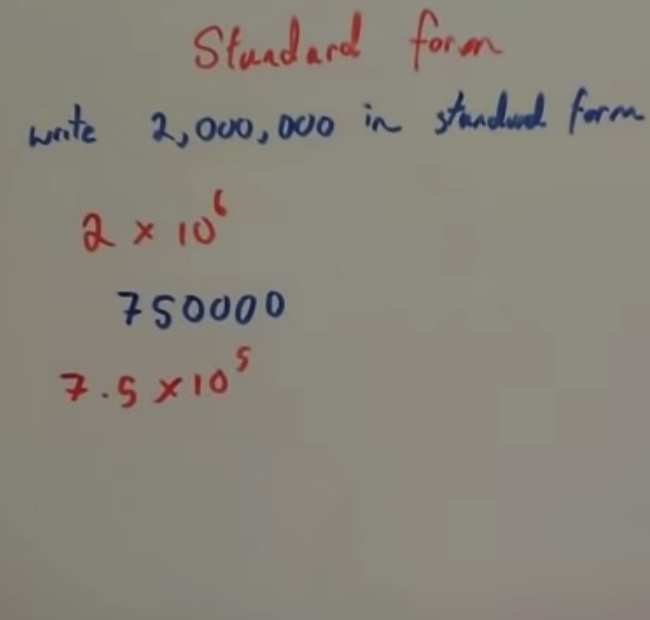 Standard form
write 2,000,000 in standard form
2 × 10⁶
750000
7.5 × 10⁵